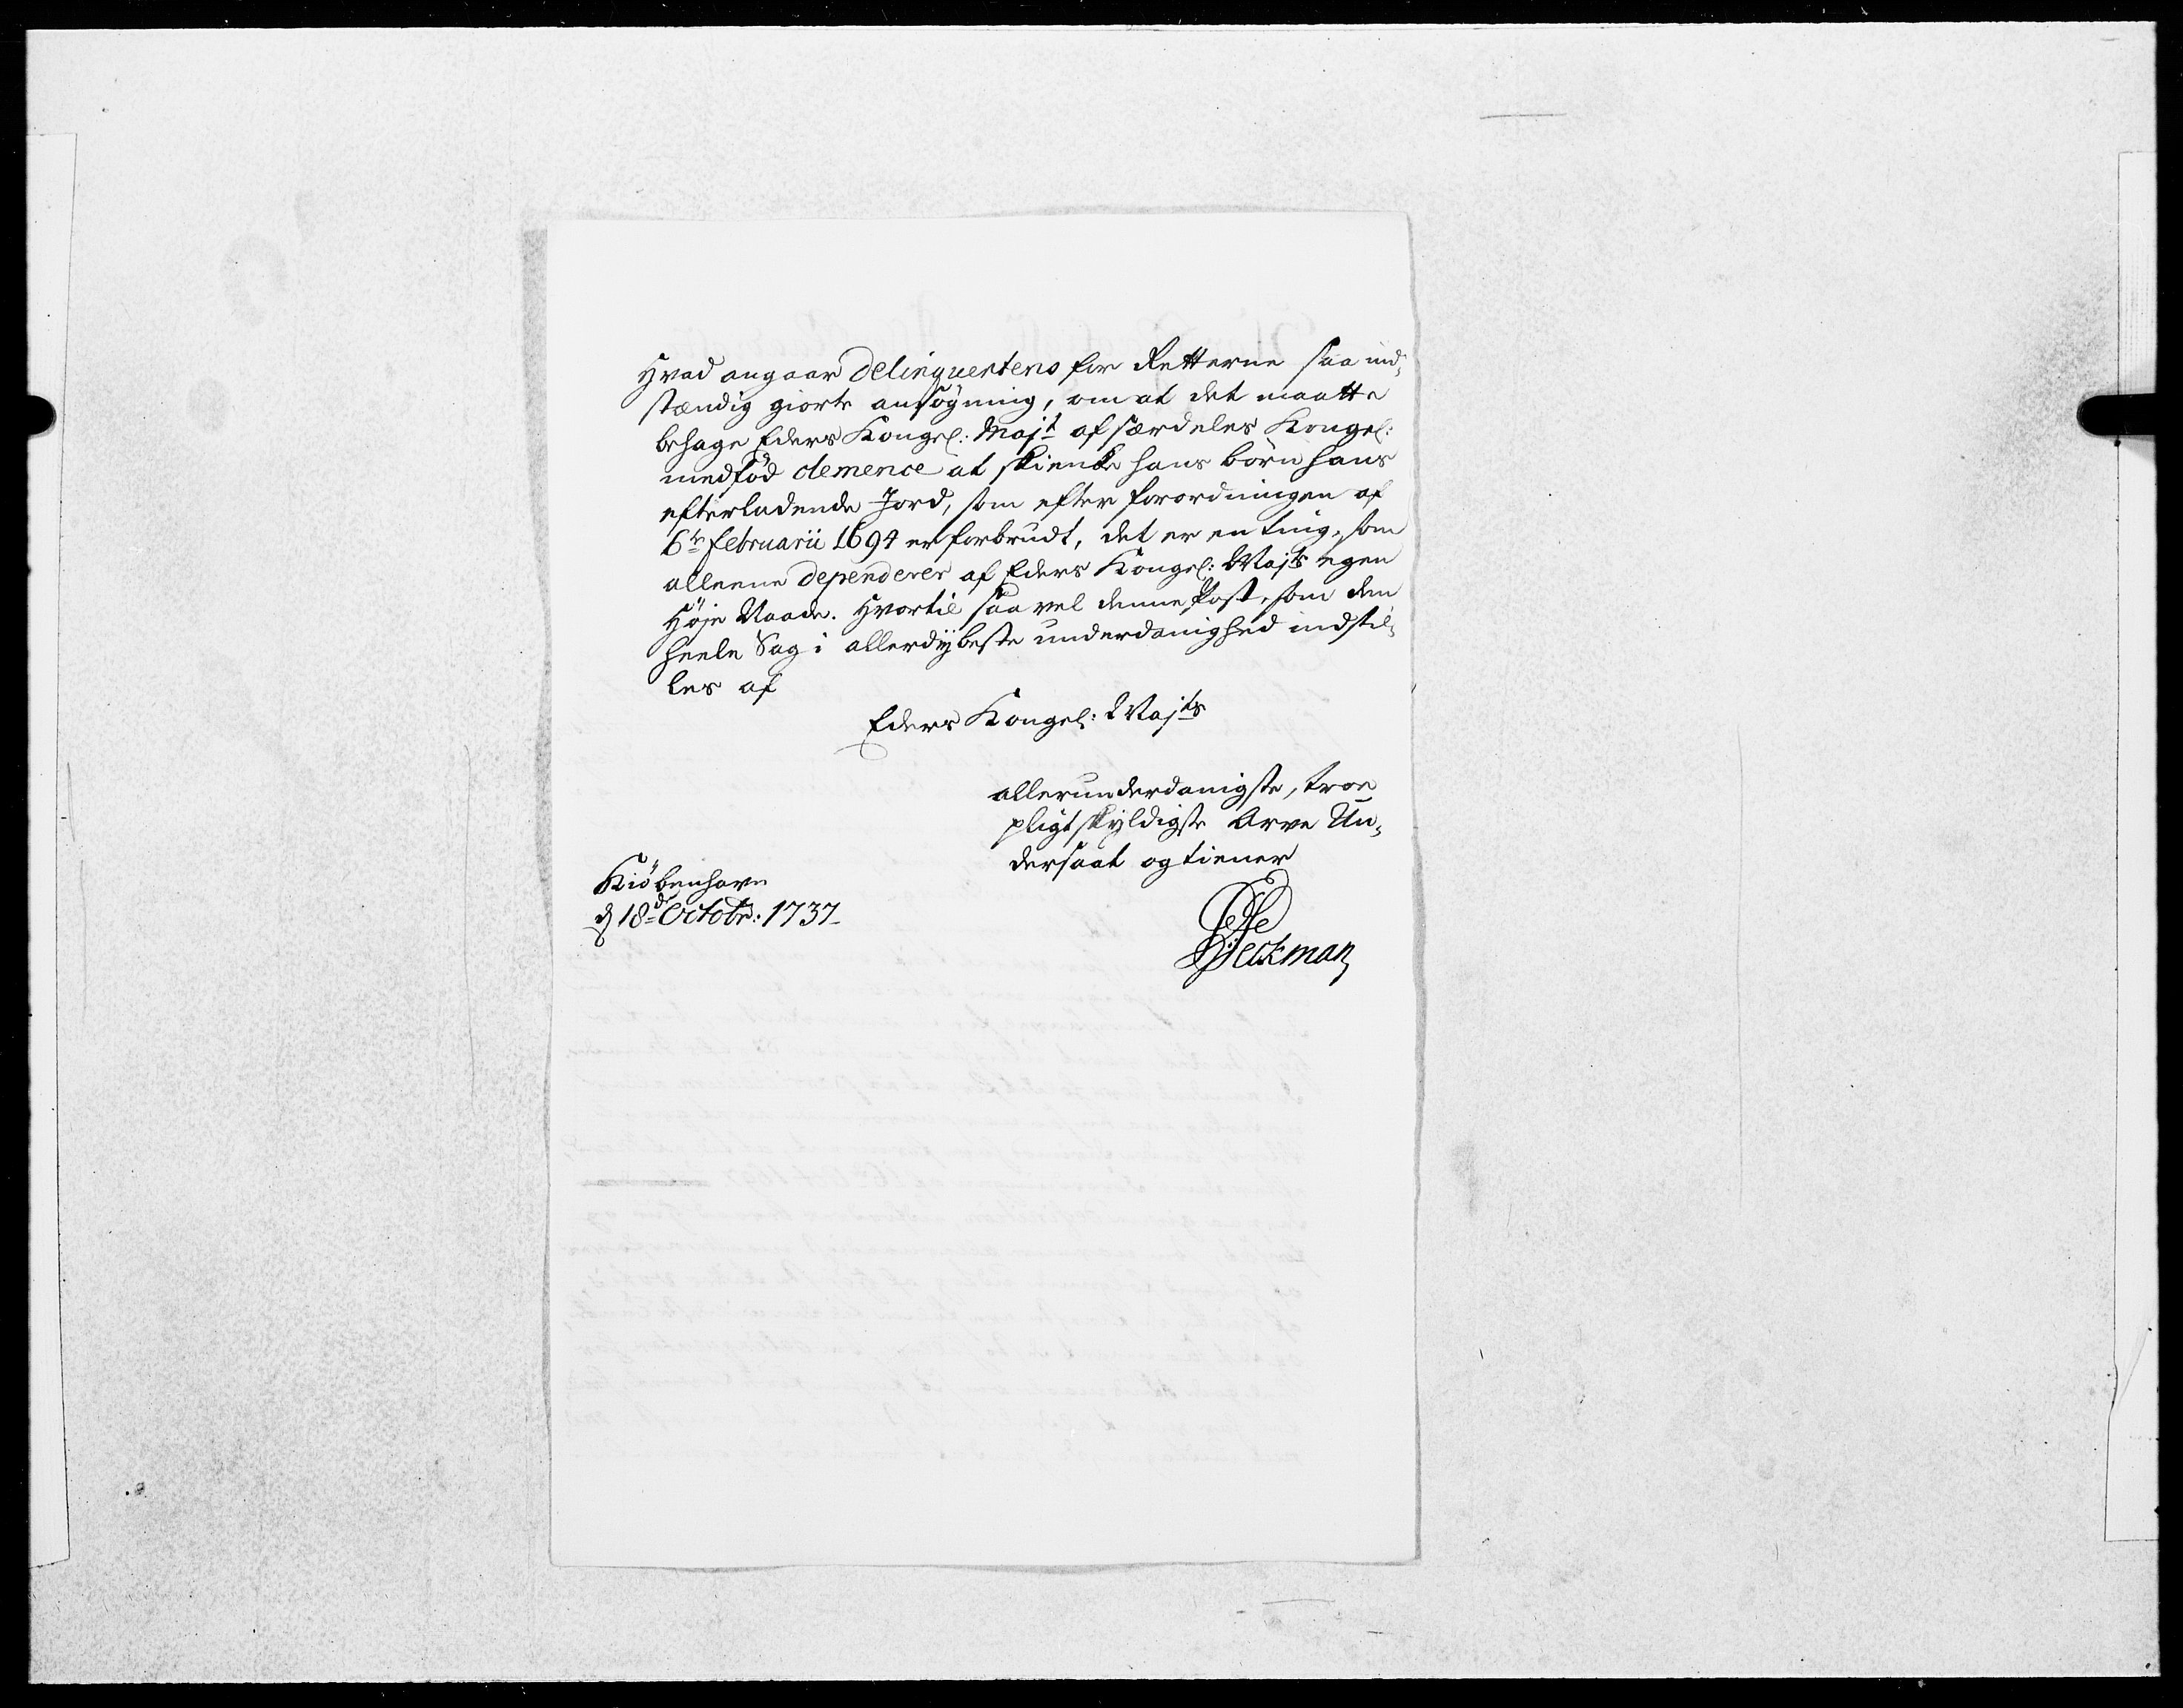 Hvad angaar Delinquentens for Retterne saa ind¬
stændig giorte ansøgning, om at det maatte
behage Eders Kongel: Majt af særdeles Kongel:
medfød clemence at skiencke hans børn hans
efterladende Jord, som efter forordningen af
6te Februarii 1694 er forbrudt, det er en ting, som
alleene dependerer af Eders Kongel: Majts egen
Høje Naade. Hvortil saa vel denne Post, som den
heele Sag i allerdybeste underdanighed indstil¬
les af
Eders Kongel: Majts
allerunderdanigste, troe
pligtskyldigste Arve Un¬
dersaat og tiener
Kiøbenhavn
d 18de Octobr: 1737